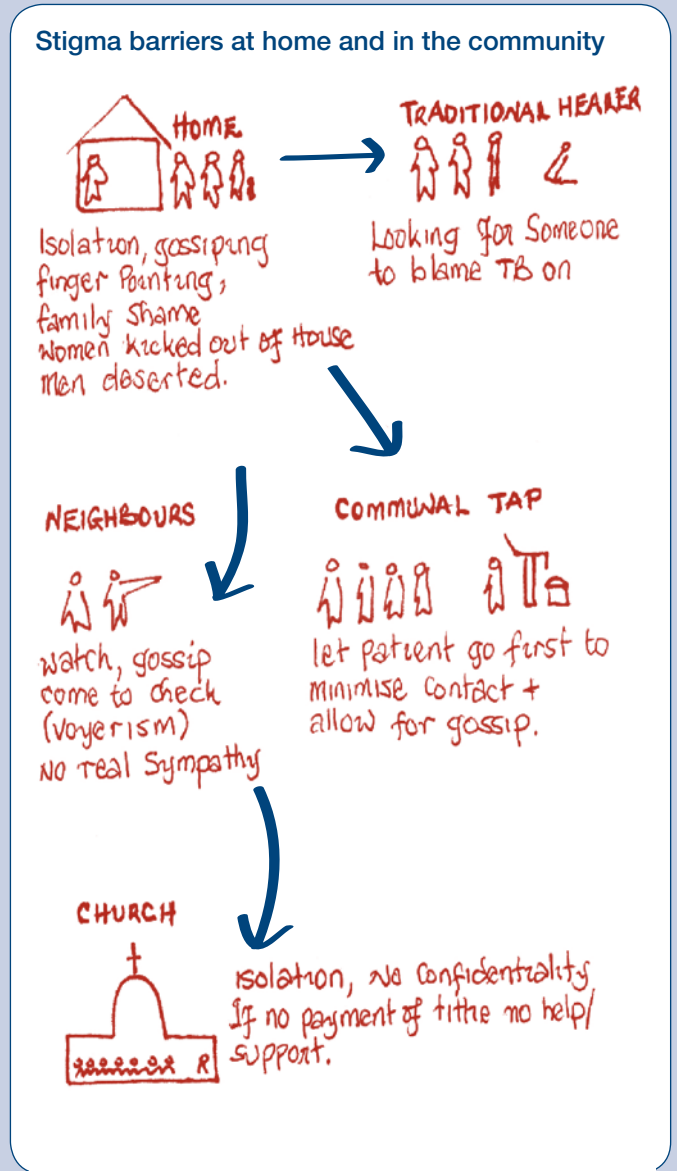 Stigma barriers at home and in the community
HOME
Isolation, gossiping
finger Pointing,
family shame
women kicked out of House
Men deserted.
TRADITIONAL HEALER
Looking for Someone
to blame TB on
NEIGHBOURS
watch, gossip
come to check
(voyerism)
NO real Sympathy
COMMUNAL TAP
let patient go first to
minimise contact +
allow for gossip.
CHURCH
R
Isolation, No Confidentiality
If no payment of tithe no help/
support.